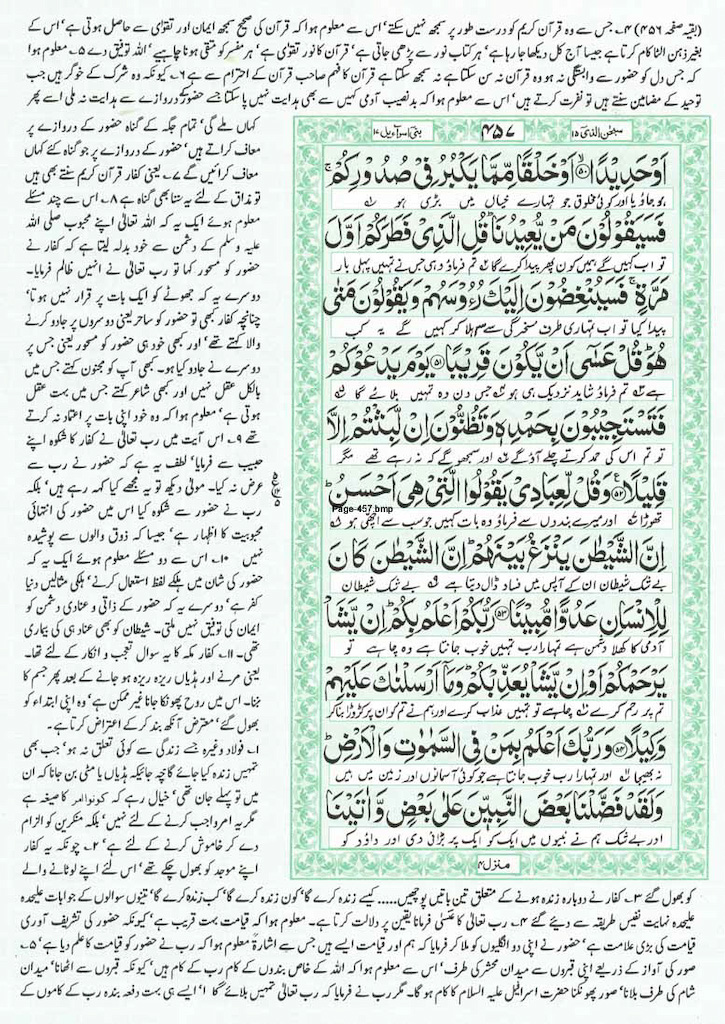 (بقیہ صفحہ ۴۵۶) ۴۔ جس سے وہ قرآن کریم کو درست طور پر سمجھ نہیں سکتے' اس سے معلوم ہوا کہ قرآن کی صحیح سمجھ ایمان اور تقوٰی سے حاصل ہوتی ہے' اس کے
بغیر ذہن الٹا کام کرتا ہے جیسا آج کل دیکھا جا رہا ہے' ہر کتاب نور سے پڑھی جاتی ہے' قرآن کا نور تقوٰی ہے' ہر مفسر کو متقی ہونا چاہیے' اللہ توفیق دے ۵۔ معلوم ہوا
کہ جس دل کو حضور سے وابستگی نہ ہو وہ قرآن نہ سن سکتا ہے نہ سمجھ سکتا ہے قرآن کا فہم صاحب قرآن کے احترام سے ہے ۶۔ کیونکہ وہ شرک کے خوگر ہیں جب
توحید کے مضامین سنتے ہیں تو نفرت کرتے ہیں' اس سے معلوم ہوا کہ بدنصیب آدمی کہیں سے بھی ہدایت نہیں پا سکتا جسے حضور کے دروازے سے ہدایت نہ ملی اسے پھر
کہاں ملے گی' تمام جگہ کے گناہ حضور کے دروازے پر
معاف کراتے ہیں' حضور کے دروازے پر جو گناہ کئے کہاں
معاف کرائیں گے ۷۔ یعنی کفار قرآن کریم سنتے بھی ہیں
تو مذاق کے لئے یہ سننا بھی گناہ ہے ۸۔ اس سے چند مسئلے
معلوم ہوئے ایک یہ کہ اللہ تعالٰی اپنے محبوب صلی اللہ
علیہ وسلم کے دشمن سے خود بدلہ لیتا ہے کہ کفار نے
حضور کو مسحور کہا تو رب تعالٰی نے انہیں ظالم فرمایا۔
دوسرے یہ کہ جھوٹے کو ایک بات پر قرار نہیں ہوتا'
چنانچہ کفار کبھی تو حضور کو ساحر یعنی دوسروں پر جادو کرنے
والا کہتے تھے' اور کبھی خود ہی حضور کو مسحور یعنی جس پر
دوسرے نے جادو کیا ہو۔ کبھی آپ کو مجنون کہتے جس میں
بالکل عقل نہیں اور کبھی شاعر کہتے جس میں بہت عقل
ہوتی ہے' معلوم ہوا کہ وہ خود اپنی بات پر اعتماد نہ کرتے
تھے ۹۔ اس آیت میں رب تعالٰی نے کفار کا شکوہ اپنے
حبیب سے فرمایا' لطف یہ ہے کہ حضور نے رب سے
عرض نہ کیا۔ مولٰی دیکھ تو یہ مجھے کیا کہہ رہے ہیں' بلکہ
رب نے حضور سے شکوہ کیا اس میں حضور کی انتہائی
محبوبیت کا اظہار ہے' جیسا کہ ذوق والوں سے پوشیدہ
نہیں ۱۰۔ اس سے دو مسئلے معلوم ہوئے ایک یہ کہ
حضور کی شان میں ہلکے لفظ استعمال کرنے' ہلکی مثالیں دینا
کفر ہے' دوسرے یہ کہ حضور کے ذاتی و عنادی دشمن کو
ایمان کی توفیق نہیں ملتی۔ شیطان کو بھی عناد ہی کی بیماری
تھی۔ ۱۱۔ کفار مکہ کا یہ سوال تعجب و انکار کے لئے تھا۔
یعنی مرنے اور ہڈیاں ریزہ ریزہ ہو جانے کے بعد پھر جسم کا
بننا۔ اس میں روح پھونکا جانا غیر ممکن ہے' وہ اپنی ابتداء کو
بھول گئے' معترض آنکھ بند کر کے اعتراض کرتا ہے۔
۱۔ فولاد وغیرہ جسے زندگی سے کوئی تعلق نہ ہو' جب بھی
تمہیں زندہ کیا جائے گا چہ جائیکہ ہڈیاں یا مٹی بن جانا کہ ان
میں تو پہلے جان تھی' خیال رہے کہ کونوا امر کا صیغہ ہے
مگر یہ امر واجب کرنے کے لئے نہیں' بلکہ منکرین کو الزام
دے کر خاموش کرنے کے لئے ہے' ۲۔ چونکہ یہ کفار
اپنے موجد کو بھول چکے تھے' اس لئے اپنے لوٹانے والے
سبحٰن الذی ۱۵ ۴۵۷ بنی اسرآءیل ۱۷
اَوْ حَدِیْدًا ۙ۵۰ اَوْ خَلْقًا مِّمَّا یَكْبُرُ فِیْ صُدُوْرِكُمْ ۚ
ہو جاؤ یا اور کوئی مخلوق جو تمہارے خیال میں بڑی ہو
فَسَیَقُوْلُوْنَ مَنْ یُّعِیْدُنَا ؕ قُلِ الَّذِیْ فَطَرَكُمْ اَوَّلَ
تو اب کہیں گے ہمیں کون پھر پیدا کرے گا تم فرماؤ وہی جس نے تمہیں پہلی بار
مَرَّةٍ ۚ فَسَیُنْغِضُوْنَ اِلَیْكَ رُءُوْسَهُمْ وَ یَقُوْلُوْنَ مَتٰى
پیدا کیا تو اب تمہاری طرف مسخرگی سے سر ہلا کر کہیں گے یہ کب
هُوَ ؕ قُلْ عَسٰۤى اَنْ یَّكُوْنَ قَرِیْبًا ۵۱ یَوْمَ یَدْعُوْكُمْ
ہے تم فرماؤ شاید نزدیک ہی ہو جس دن وہ تمہیں بلائے گا
فَتَسْتَجِیْبُوْنَ بِحَمْدِهٖ وَ تَظُنُّوْنَ اِنْ لَّبِثْتُمْ اِلَّا
تو تم اس کی حمد کرتے چلے آؤ گے اور سمجھو گے کہ نہ رہے تھے مگر
قَلِیْلًا ۠۵۲ وَ قُلْ لِّعِبَادِیْ یَقُوْلُوا الَّتِیْ هِیَ اَحْسَنُ ؕ
تھوڑا اور میرے بندوں سے فرماؤ وہ بات کہیں جو سب سے اچھی ہو
Page-457.bmp
اِنَّ الشَّیْطٰنَ یَنْزَغُ بَیْنَهُمْ ؕ اِنَّ الشَّیْطٰنَ كَانَ
بے شک شیطان ان کے آپس میں فساد ڈال دیتا ہے بے شک شیطان
لِلْاِنْسَانِ عَدُوًّا مُّبِیْنًا ۵۳ رَبُّكُمْ اَعْلَمُ بِكُمْ ؕ اِنْ یَّشَاْ
آدمی کا کھلا دشمن ہے تمہارا رب تمہیں خوب جانتا ہے وہ چاہے تو
یَرْحَمْكُمْ اَوْ اِنْ یَّشَاْ یُعَذِّبْكُمْ ؕ وَ مَاۤ اَرْسَلْنٰكَ عَلَیْهِمْ
تم پر رحم کرے چاہے تو تمہیں عذاب کرے اور ہم نے تم کو ان پر کڑوڑا بنا کر
وَكِیْلًا ۵۴ وَ رَبُّكَ اَعْلَمُ بِمَنْ فِی السَّمٰوٰتِ وَ الْاَرْضِ ؕ
نہ بھیجا اور تمہارا رب خوب جانتا ہے جو کوئی آسمانوں اور زمین میں ہیں
وَ لَقَدْ فَضَّلْنَا بَعْضَ النَّبِیّٖنَ عَلٰى بَعْضٍ وَّ اٰتَیْنَا
اور بے شک ہم نے نبیوں میں ایک کو ایک پر بڑائی دی اور داؤد کو
منزل ۴
کو بھول گئے ۳۔ کفار نے دوبارہ زندہ ہونے کے متعلق تین باتیں پوچھیں ..... کیسے زندہ کرے گا' کون زندہ کرے گا' کب زندہ کرے گا' تینوں سوالوں کے جوابات علیحدہ
علیحدہ نہایت نفیس طریقہ سے دیئے گئے ۴۔ رب تعالٰی کا عَسٰی فرمانا یقین پر دلالت کرتا ہے۔ معلوم ہوا کہ قیامت بہت قریب ہے' کیونکہ حضور کی تشریف آوری
قیامت کی بڑی علامت ہے' حضور نے اپنی دو انگلیوں کو ملا کر فرمایا کہ ہم اور قیامت ایسے ہیں جس سے اشارۃً معلوم ہوا کہ رب نے حضور کو قیامت کا علم دیا ہے' ۵۔
صور کی آواز کے ذریعے اپنی قبروں سے میدان محشر کی طرف' اس سے معلوم ہوا کہ اللہ کے خاص بندوں کے کام رب کے کام ہیں' کیونکہ قبروں سے اٹھانا' میدان
شام کی طرف بلانا' صور پھونکنا حضرت اسرافیل علیہ السلام کا کام ہو گا۔ مگر رب نے فرمایا کہ رب تعالٰی تمہیں بلائے گا ا' ایسے ہی بہت دفعہ بندہ رب کے کاموں کے